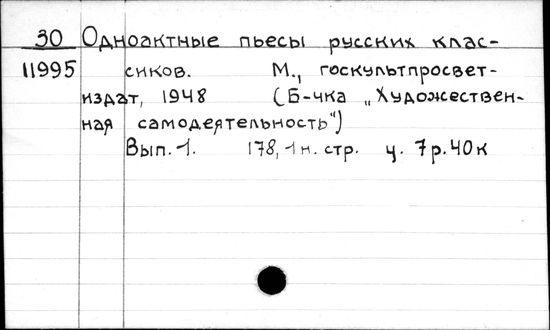 30 Одноактные пьесы русских клас-
11995 сиков. М., госкультпросвет-
издат, 1948 (Б-чка „Художествен-
ная самодеятельность")
Вып. 1. 178, 1 н. стр. ц. 7р.40к